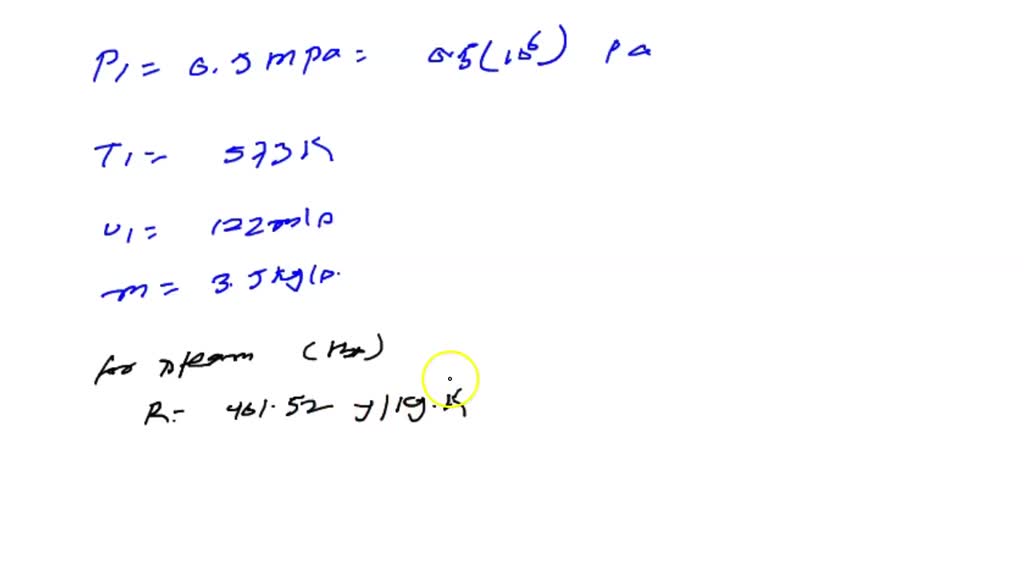 P1 = 0.5 mpa = 0.5(10^6) pa
T1 = 573 K
u1 = 122 m/s
m = 3.5 kg/s.
for steam
R = 461.52 J/kg.K